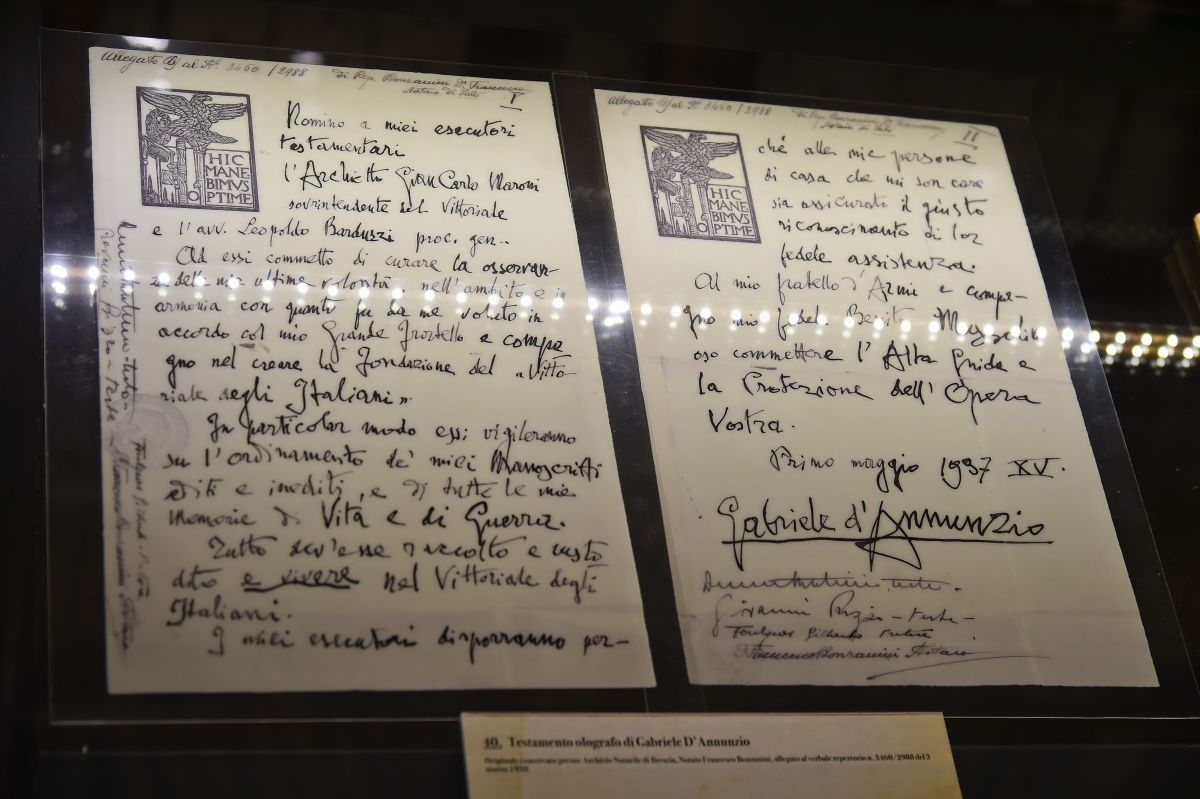 Allegato B) al N. 3460 / 2988
di Rep. Bonzanini Dr. Francesco
Notaio di Salò
I
HIC
MANE
BIMVS
PTIME
Nomino a miei esecutori
testamentari
l'Architetto GianCarlo Maroni
sovrintendente del Vittoriale
e l'avv. Leopoldo Barduzzi proc. gen..
Ad essi commetto di curare la osservan-
za delle mie ultime volontà, nell'ambito e in
armonia con quanto fu da me voluto in
accordo col mio Grande Fratello e compa
gno nel creare la Fondazione del «Vitto-
riale degli Italiani».
In particolar modo essi vigileranno
su l'ordinamento de' miei Manoscritti
editi e inediti, e di tutte le mie
Memorie di Vita e di Guerra.
Tutto dev'esse raccolto e custo
dito e vivere nel Vittoriale degli
Italiani.
I miei esecutori disporranno per-
Allegato B) al N. 3460 / 2988
di Rep. Bonzanini Dr. Francesco
Notaio di Salò
II
HIC
MANE
BIMVS
PTIME
ché alle mie persone
di casa che mi son care
sia assicurato il giusto
riconoscimento di lor
fedele assistenza.
Al mio fratello d'Armi e compa-
gno mio fedel. Benito Mussolini
oso commettere l'Alta Guida e
la Protezione dell'Opera
Vostra.
Primo maggio 1937 XV.
Gabriele d'Annunzio
teste.
Giovanni Pozzo - teste -
Francesco Bonzanini Notaio
40. Testamento olografo di Gabriele D'Annunzio
Originale conservato presso Archivio Notarile di Brescia, Notaio Francesco Bonzanini, allegato al verbale repertorio n. 3460/2988 del 3
marzo 1938